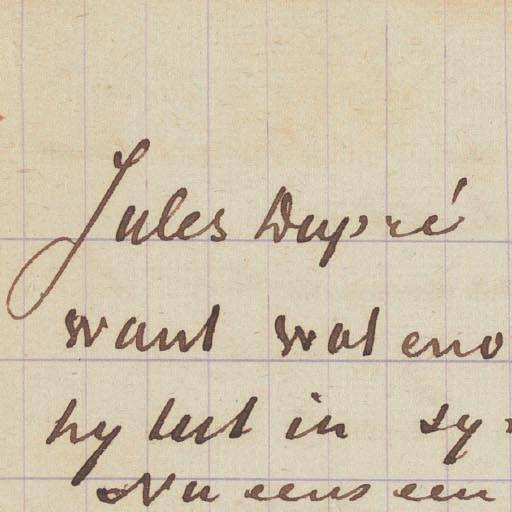 Jules Dupré
want wat eno
hy lust in zy
Nu eens een